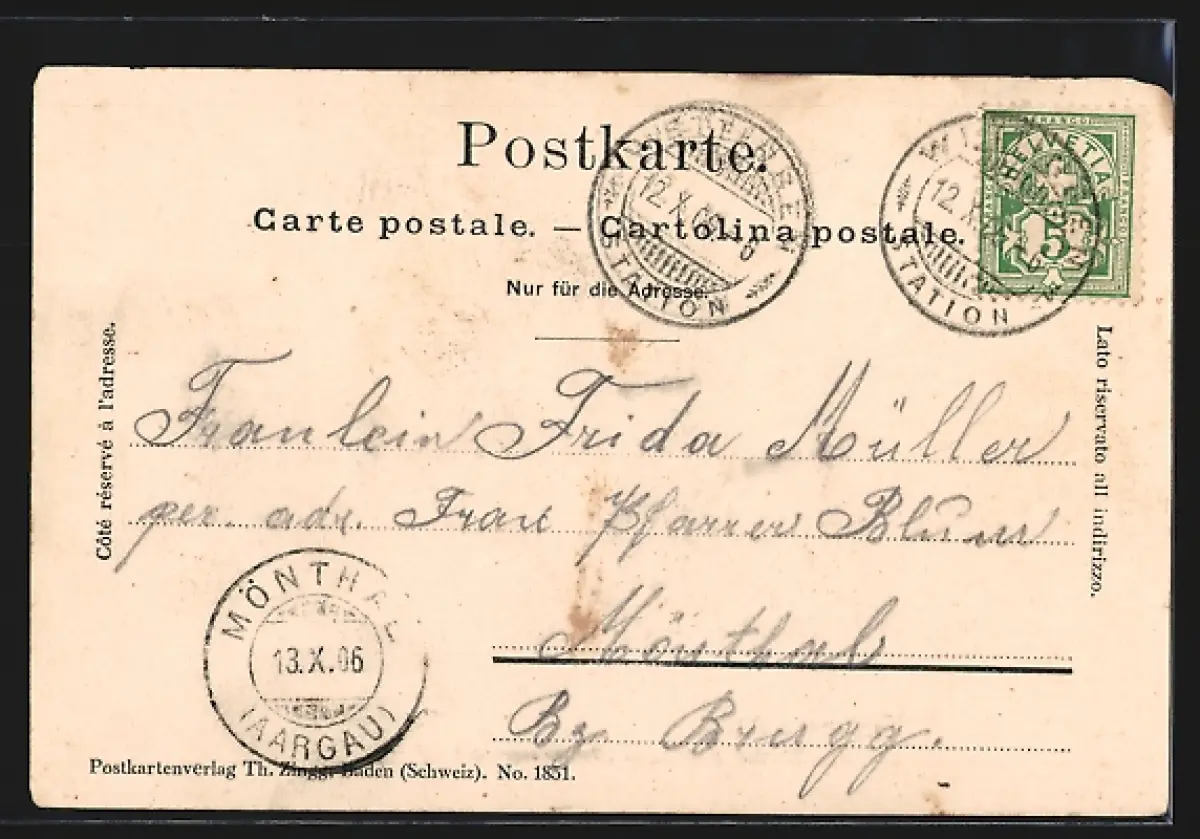 Postkarte.
Carte postale. — Cartolina postale.
Nur für die Adresse.
STATION
12.X.06
STATION
12.X
FRANCO
HELVETIA
5
Côté réservé à l'adresse.
Lato riservato all indirizzo.
Fraulein Frida Müller
per. adr. Frau Pfarrer Blum
Mönthal
Bz. Brugg.
MÖNTHAL
13.X.06
(AARGAU)
Postkartenverlag Th. Zingg, Baden (Schweiz). No. 1851.